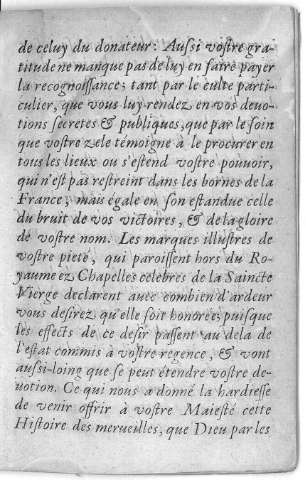 de celuy du donateur: Aussi vostre gra-
titude ne manque pas de luy en faire payer
la recognoissance; tant par le culte parti-
culier, que vous luy rendez en vos deuo-
tions secretes & publiques, que par le soin
que vostre zele témoigne à le procurer en
tous les lieux ou s'estend vostre pouuoir,
qui n'est pas restreint dans les bornes de la
France; mais égale en son estandue celle
du bruit de vos victoires, & de la gloire
de vostre nom. Les marques illustres de
vostre pieté, qui paroissent hors du Ro-
yaume ez Chapelles celebres de la Saincte
Vierge declarent auec combien d'ardeur
vous desirez qu'elle soit honorée; puisque
les effects de ce desir passent au dela de
l'estat commis à vostre regence, & vont
aussi-loing que se peut étendre vostre de-
uotion. Ce qui nous a donné la hardiesse
de venir offrir à vostre Maiesté cette
Histoire des merueilles, que Dieu par les